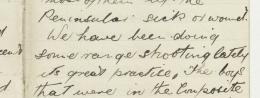 Peninsular sick or wound.
We have been doing
some range shooting lately
its great practice, The boys
that were in the Composite